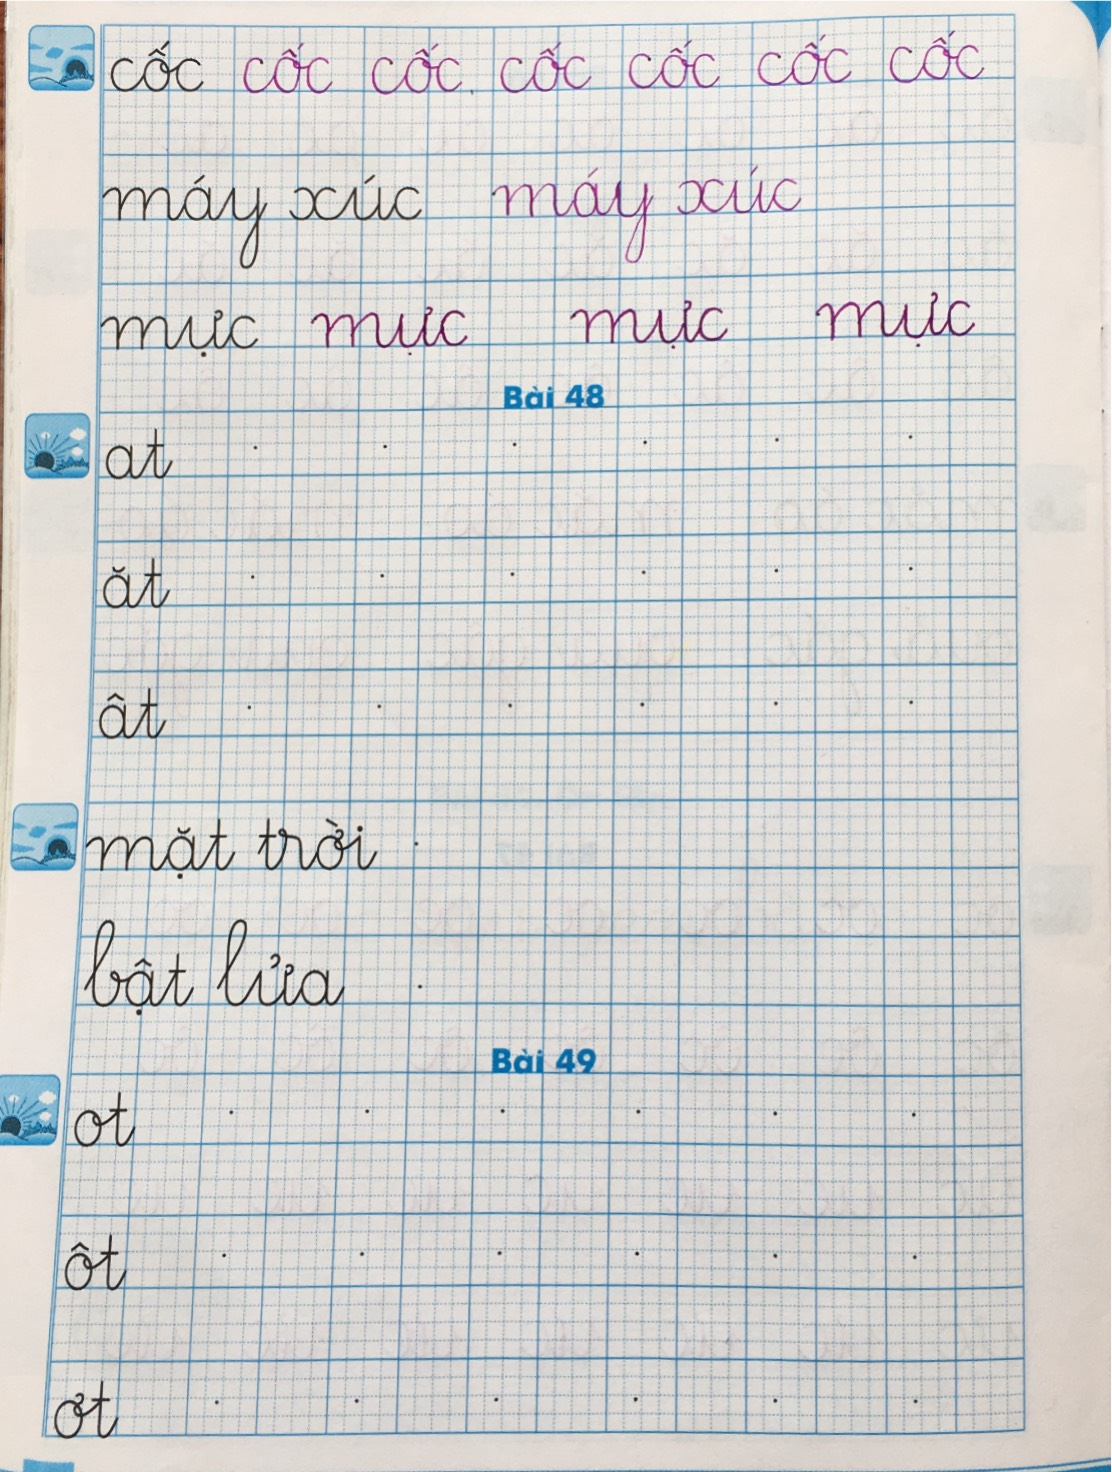 cốc cốc cốc cốc cốc cốc cốc
máy xúc máy xúc
mực mực mực mực
Bài 48
at
ăt
ât
mặt trời
bật lửa
Bài 49
ot
ôt
ơt